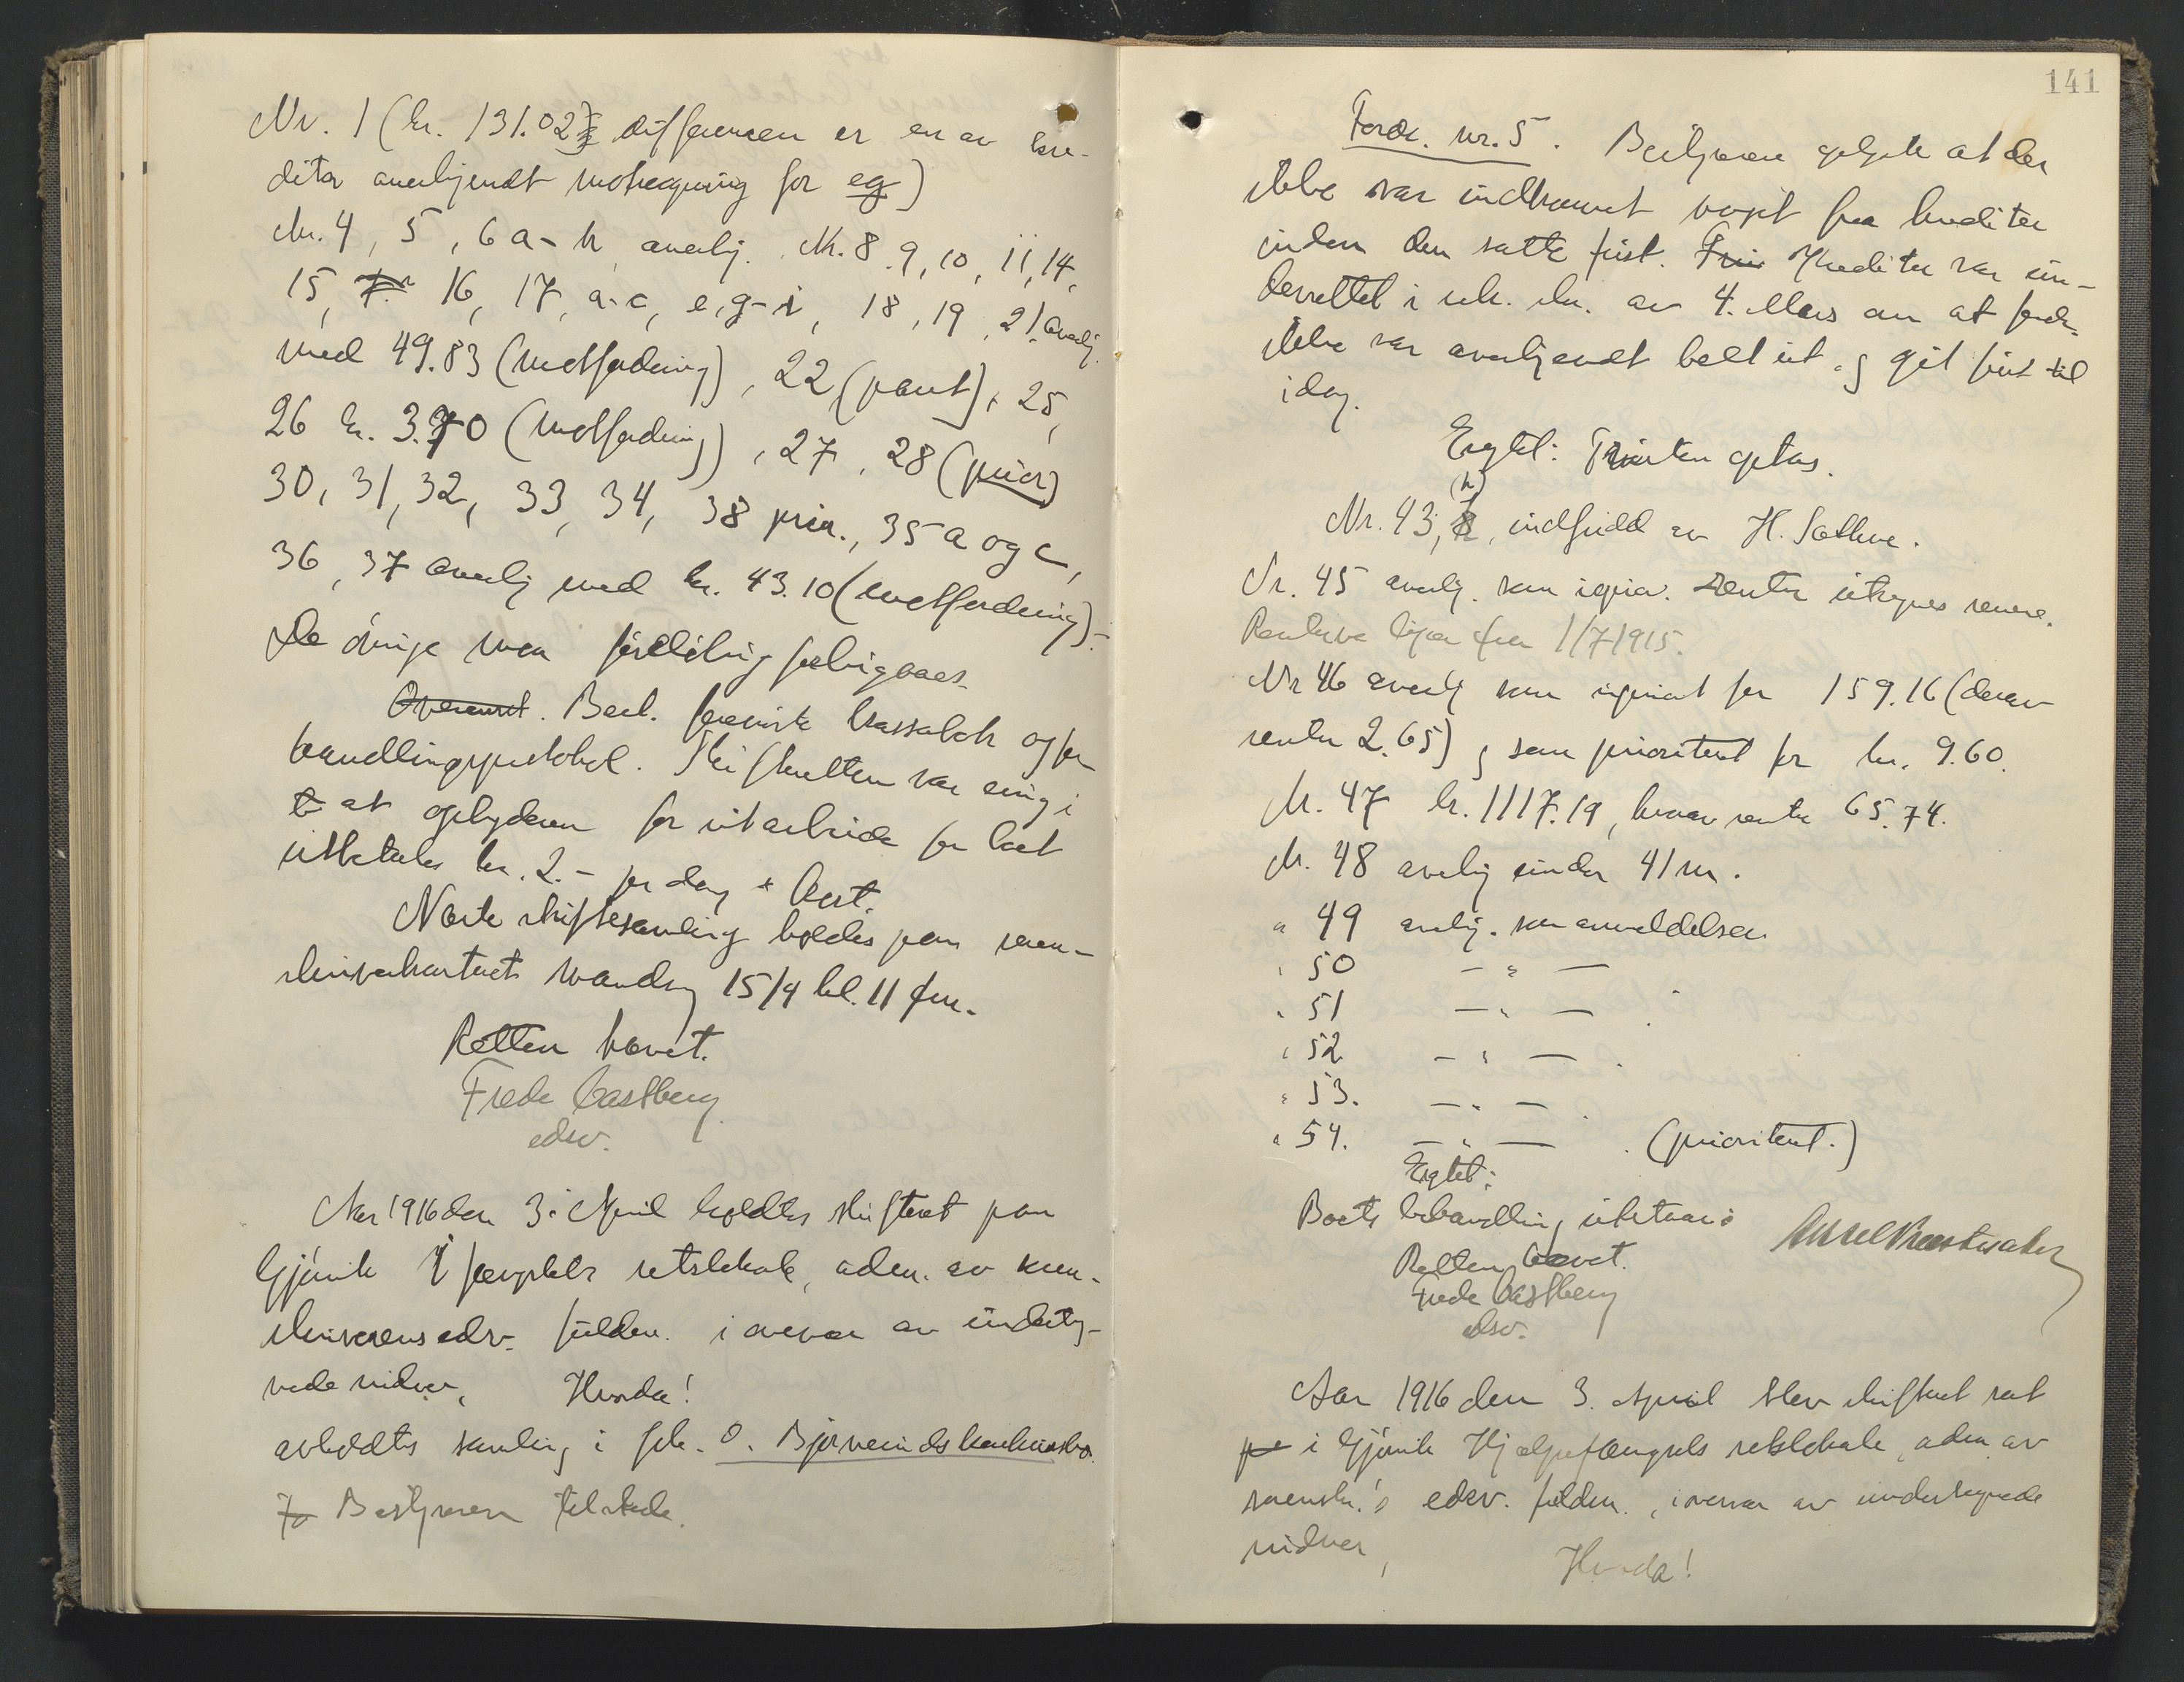 Nr. 1 (kr. 131.02; differencen er en av kre-
ditor anerkjendt motregning for eg)
Nr. 4, 5, 6 a-h anerkj. Nr. 8, 9, 10, 11, 14,
15, 16, 17, a-c, e, g-i, 18, 19, 21. Anerkj.
med 49.83 (motfordring), 22 (pant), 25,
26 kr. 3.70 (motfordring), 27, 28 (prior)
30, 31, 32, 33, 34, 38 prior., 35 a og c,
36, 37 anerkj med kr. 43.10 (motfordring).
De øvrige var foreløbig
Best. foreviste kassabok og for-
handlingsprotokol. Skifteretten var enig i
at opbyderen for utarbeide for boet
utbetales kr. 2.- per dag + kost.
Næste skiftesamling holdes paa soren-
skriverkontoret mandag 15/4 kl. 11 fm.
Retten hævet.
Frede Castberg
edsv.
Aar 1916 den 3. April holdtes skifteret paa
Gjøvik fængsels retslokale, adm. av soren-
skriverens edsv. fuldm. i overvær av underteg-
nede vidner, Hvorda!
avholdtes samling i fhv. O. Bjørneruds konkursbo.
Bestyreren tilstede.
141
Fordr. nr. 5. Bestyreren oplyste at der
ikke var indkommet noget fra kreditor
inden den satte frist. Kreditor var un-
derrettet i rek. skr. av 4. Mars om at fordr.
ikke var anerkjendt helt ut og git frist til
idag.
Eragtet: Tvisten optas.
(h)
Nr. 43, indfridd av H. Sæthre.
Nr. 45 anerkj. som uprior. Renter utregnes senere.
Renterne løper fra 1/7 1915.
Nr 46 anerkj som uprioritert for 159.16 (derav
renter 2.65) og som prioritert for kr. 9.60.
Nr. 47 kr. 1117.19, hvorav rente 65.74.
Nr. 48 anerkj under 41 m.
" 49 anerkj. som anmeldelsen
" 50 - " -
" 51 - " -
" 52 - " -
" 53. - " -
" 54. - " - . (prioritert.)
Eragtet:
Boets behandling utstaar.
Retten hævet.
Frede Castberg
edsv.
Aar 1916 den 3. April blev skifteret sat
i Gjøvik Hjælpefængsels retslokale, adm av
sorenskr.'s edsv. fuldm., i overvær av undertegnede
vidner,
Hvorda!